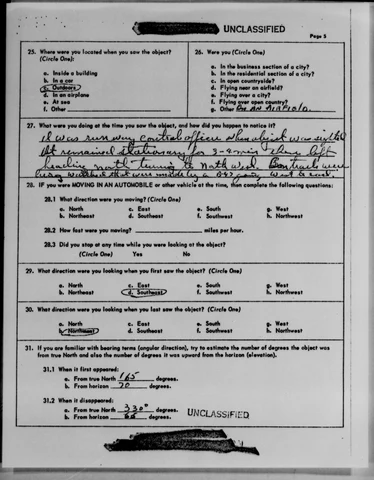 UNCLASSIFIED
Page 5
25. Where were you located when you saw the object?
(Circle One):
a. Inside a building
b. In a car
c. Outdoors
d. In an airplane
e. At sea
f. Other
26. Were you (Circle One)
a. In the business section of a city?
b. In the residential section of a city?
c. In open countryside?
d. Flying near an airfield?
e. Flying over a city?
f. Flying over open country?
g. Other ON AN AIRFIELD
27. What were you doing at the time you saw the object, and how did you happen to notice it?
I was runway control officer when object was sighted
It remained stationary for 3-4 min then left
heading north turning to North West. Contrails were
being watched that were made by a B47 going west to east.
28. IF you were MOVING IN AN AUTOMOBILE or other vehicle at the time, then complete the following questions:
28.1 What direction were you moving? (Circle One)
a. North c. East e. South g. West
b. Northeast d. Southeast f. Southwest h. Northwest
28.2 How fast were you moving? miles per hour.
28.3 Did you stop at any time while you were looking at the object?
(Circle One) Yes No
29. What direction were you looking when you first saw the object? (Circle One)
a. North c. East e. South g. West
b. Northeast d. Southeast f. Southwest h. Northwest
30. What direction were you looking when you last saw the object? (Circle One)
a. North c. East e. South g. West
b. Northeast d. Southeast f. Southwest h. Northwest
31. If you are familiar with bearing terms (angular direction), try to estimate the number of degrees the object was
from true North and also the number of degrees it was upward from the horizon (elevation).
31.1 When it first appeared:
a. From true North 165 degrees.
b. From horizon 70 degrees.
31.2 When it disappeared:
a. From true North 330° degrees.
b. From horizon degrees.
UNCLASSIFIED